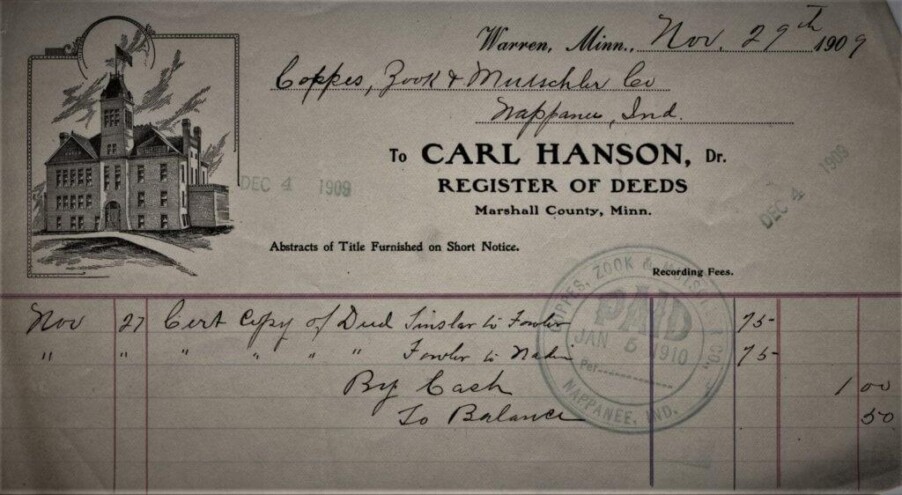 Warren, Minn., Nov. 29th 1909
Coppes, Zook & Mutschler Co
Nappanee, Ind.
To CARL HANSON, Dr.
REGISTER OF DEEDS
Marshall County, Minn.
DEC 4 1909
DEC 4 1909
Abstracts of Title Furnished on Short Notice.
Recording Fees.
COPPES, ZOOK & MUTSCHLER CO.,
PAID
JAN 5 1910
Per
NAPPANEE, IND.
Nov 27 Cert Copy of Deed to Fowler 75
" " " " " " Fowler to 75
By Cash 1 00
To Balance 50